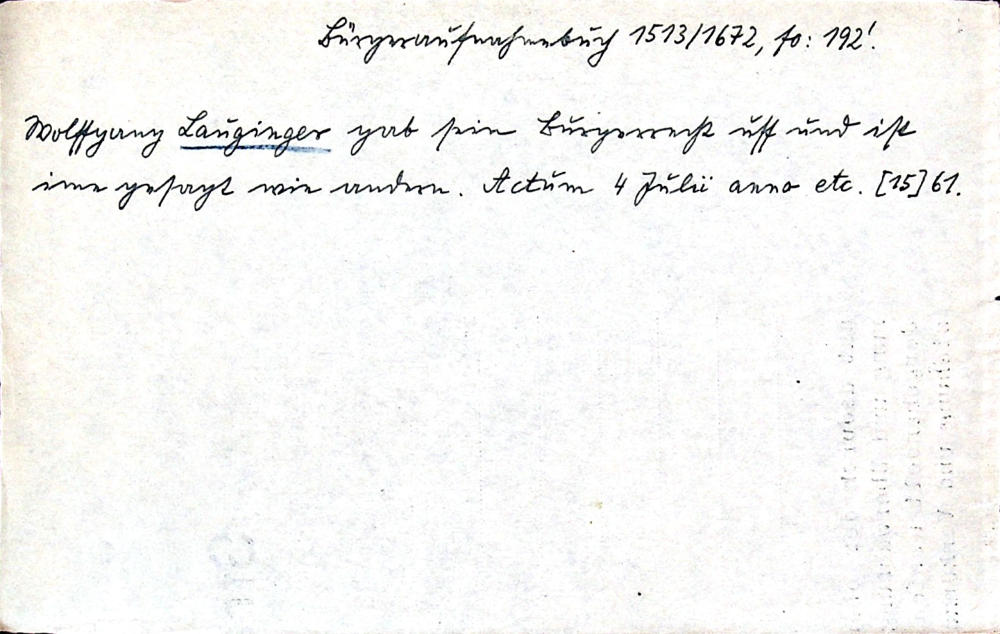 Bürgeraufnahmebuch 1513/1672, fo: 192!
Wolffgang Lauginger gab sein Burgerrecht uff und ist
ime gesagt wie andern. Actum 4 Julii anno etc. [15]61.